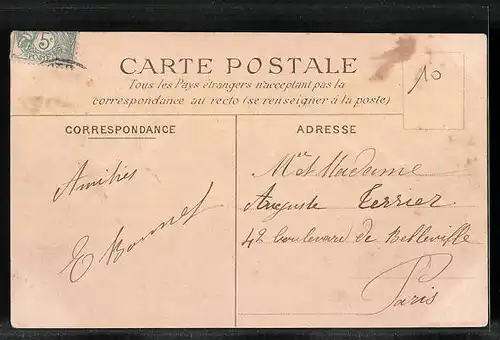 5c
POSTES
CARTE POSTALE
Tous les Pays étrangers n'acceptant pas la
correspondance au recto (se renseigner à la poste)
10
CORRESPONDANCE
Amitiés
E Bonnet
ADRESSE
Mr et Madame
Auguste Terrier
42 boulevard de Belleville
Paris